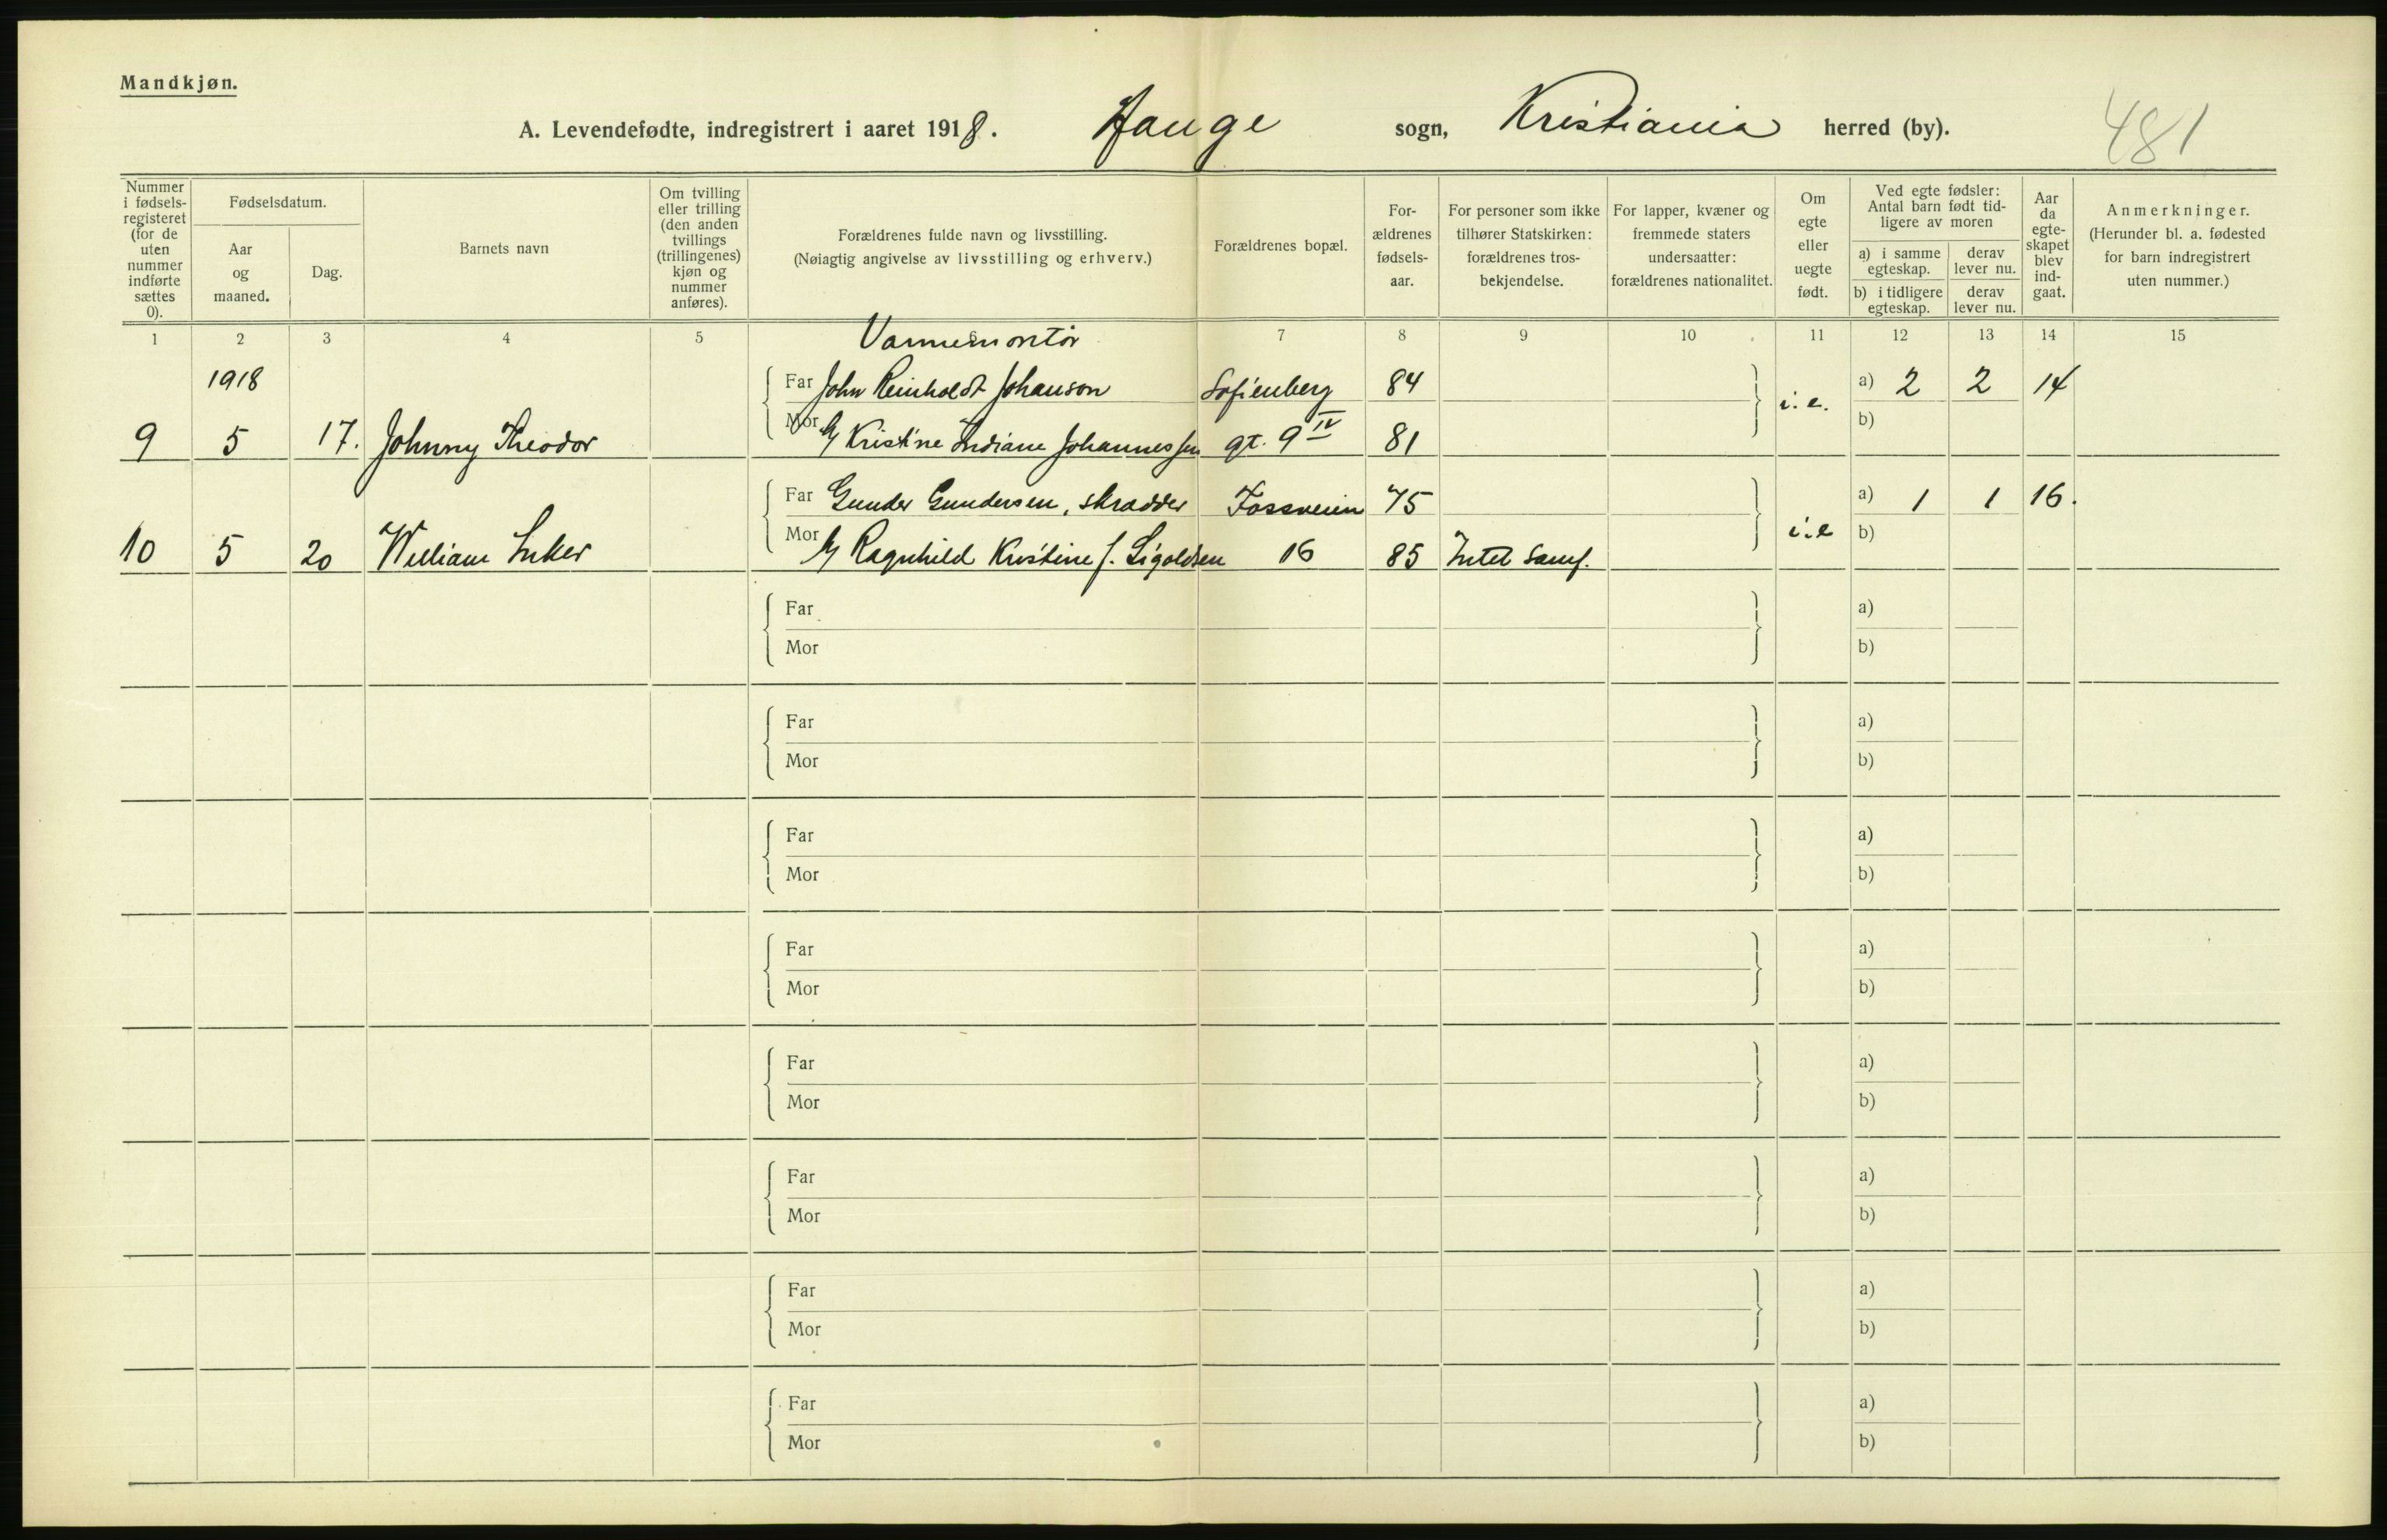 Mandkjøn.
A. Levendefødte, indregistrert i aaret 1918. Hauge sogn, Kristiania herred (by). 481
Nummer i fødselsregisteret (for de uten nummer indførte sættes 0).
Fødselsdatum.
Aar og maaned.
Dag.
Barnets navn
Om tvilling eller trilling (den anden tvillings (trillingenes) kjøn og nummer anføres).
Forældrenes fulde navn og livsstilling.
(Nøiagtig angivelse av livsstilling og erhverv.)
Forældrenes bopæl.
Forældrenes fødselsaar.
For personer som ikke tilhører Statskirken: forældrenes trosbekjendelse.
For lapper, kvæner og fremmede staters undersaatter: forældrenes nationalitet.
Om egte eller uegte født.
Ved egte fødsler: Antal barn født tidligere av moren
a) i samme egteskap.
derav lever nu.
b) i tidligere egteskap.
derav lever nu.
Aar da egteskapet blev indgaat.
Anmerkninger.
(Herunder bl. a. fødested for barn indregistrert uten nummer.)
1 2 3 4 5 7 8 9 10 11 12 13 14 15
Varmemontør
1918 Far John Reinholdt Johanson Sofienberg 84 i.e. a) 2 2 14
9 5 17. Johnny Theodor Mor Kristine Indiane Johannessen gt. 9 IV 81 b)
Far Gunder Gundersen, skrædder Fossveien 75 i.e a) 1 1 16.
10 5 20 William Mor Ragnhild Kristine f. Sigoldsen 16 85 Intet samf. b)
Far a)
Mor b)
Far a)
Mor b)
Far a)
Mor b)
Far a)
Mor b)
Far a)
Mor b)
Far a)
Mor b)
Far a)
Mor b)
Far a)
Mor b)